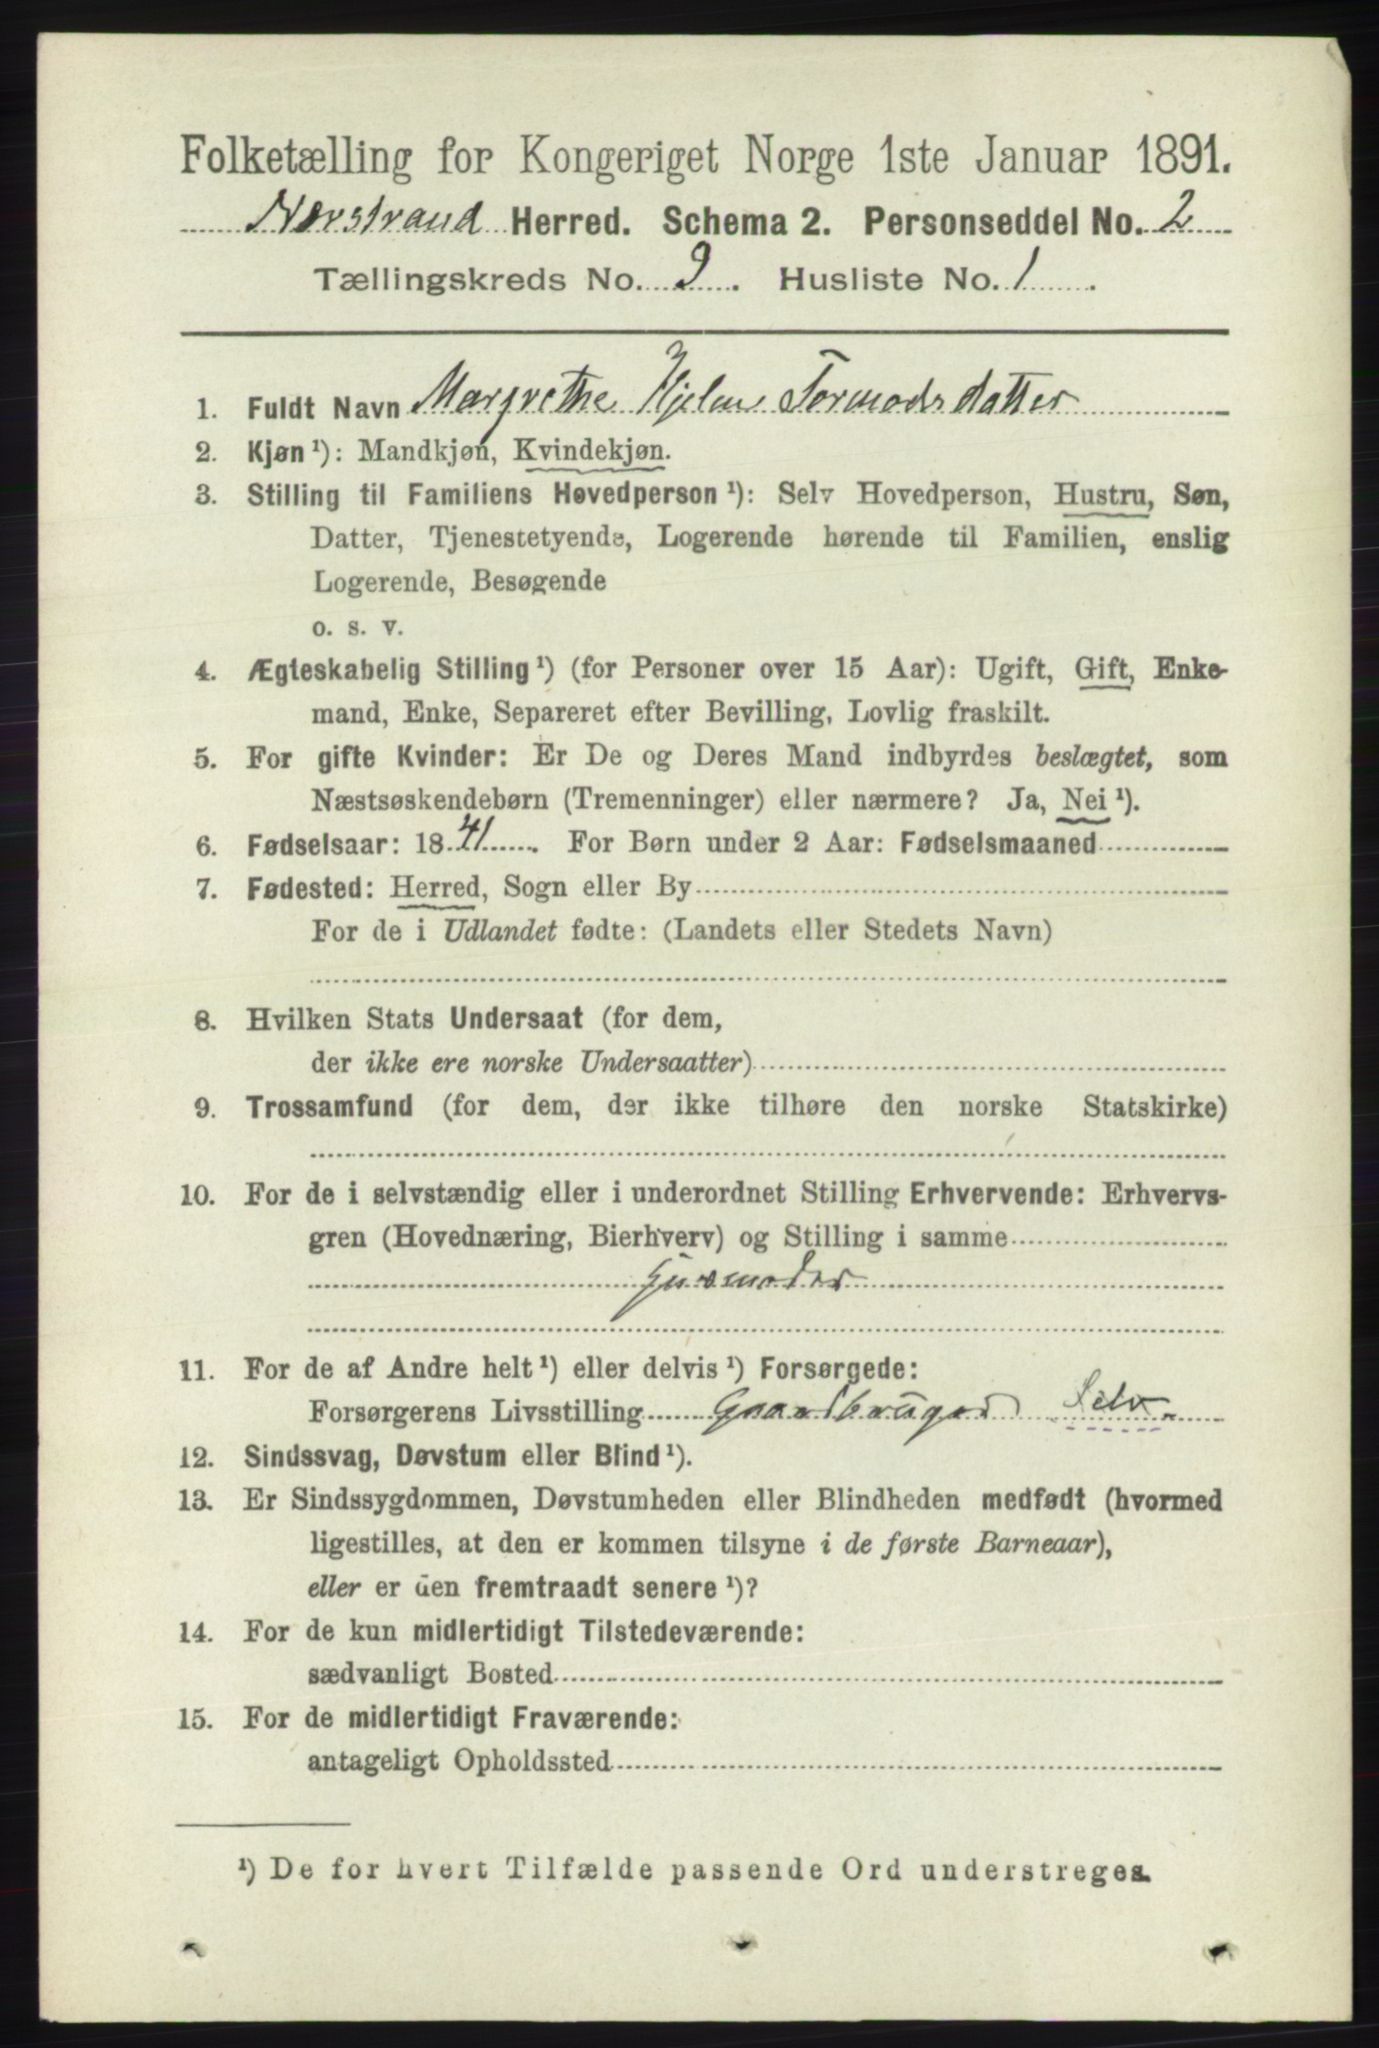 Folketælling for Kongeriget Norge 1ste Januar 1891.
Nærstrand Herred. Schema 2. Personseddel No. 2
Tællingskreds No. 9. Husliste No. 1.
1. Fuldt Navn Margrethe Hjelm Tormodsdatter
2. Kjøn ¹): Mandkjøn, Kvindekjøn.
3. Stilling til Familiens Hovedperson ¹): Selv Hovedperson, Hustru, Søn,
Datter, Tjenestetyende, Logerende hørende til Familien, enslig
Logerende, Besøgende
o. s. v.
4. Ægteskabelig Stilling ¹) (for Personer over 15 Aar): Ugift, Gift, Enke-
mand, Enke, Separeret efter Bevilling, Lovlig fraskilt.
5. For gifte Kvinder: Er De og Deres Mand indbyrdes beslægtet, som
Næstsøskendebørn (Tremenninger) eller nærmere? Ja, Nei ¹).
6. Fødselsaar: 1841. For Børn under 2 Aar: Fødselsmaaned
7. Fødested: Herred, Sogn eller By
For de i Udlandet fødte: (Landets eller Stedets Navn)
8. Hvilken Stats Undersaat (for dem,
der ikke ere norske Undersaatter)
9. Trossamfund (for dem, der ikke tilhøre den norske Statskirke)
10. For de i selvstændig eller i underordnet Stilling Erhvervende: Erhvervs-
gren (Hovednæring, Bierhverv) og Stilling i samme
Husmoder
11. For de af Andre helt ¹) eller delvis ¹) Forsørgede:
Forsørgerens Livsstilling Gaardbruger Selv.
12. Sindssvag, Døvstum eller Blind ¹).
13. Er Sindssygdommen, Døvstumheden eller Blindheden medfødt (hvormed
ligestilles, at den er kommen tilsyne i de første Barneaar),
eller er den fremtraadt senere ¹)?
14. For de kun midlertidigt Tilstedeværende:
sædvanligt Bosted
15. For de midlertidigt Fraværende:
antageligt Opholdssted
¹) De for hvert Tilfælde passende Ord understreges.